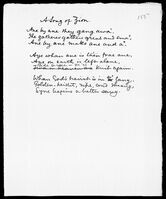 A Song of Zion
155
Ane by ane they gang awa',
The gatherer gathers great and sma',
Ane by ane maks ane and a'.
Aye when ane is ta'en frae ane,
Ane on earth is left alane,
knit again.
When God's hairst is in fang,
Golden-heidit, ripe, and strang,
Syne begins a better sang.